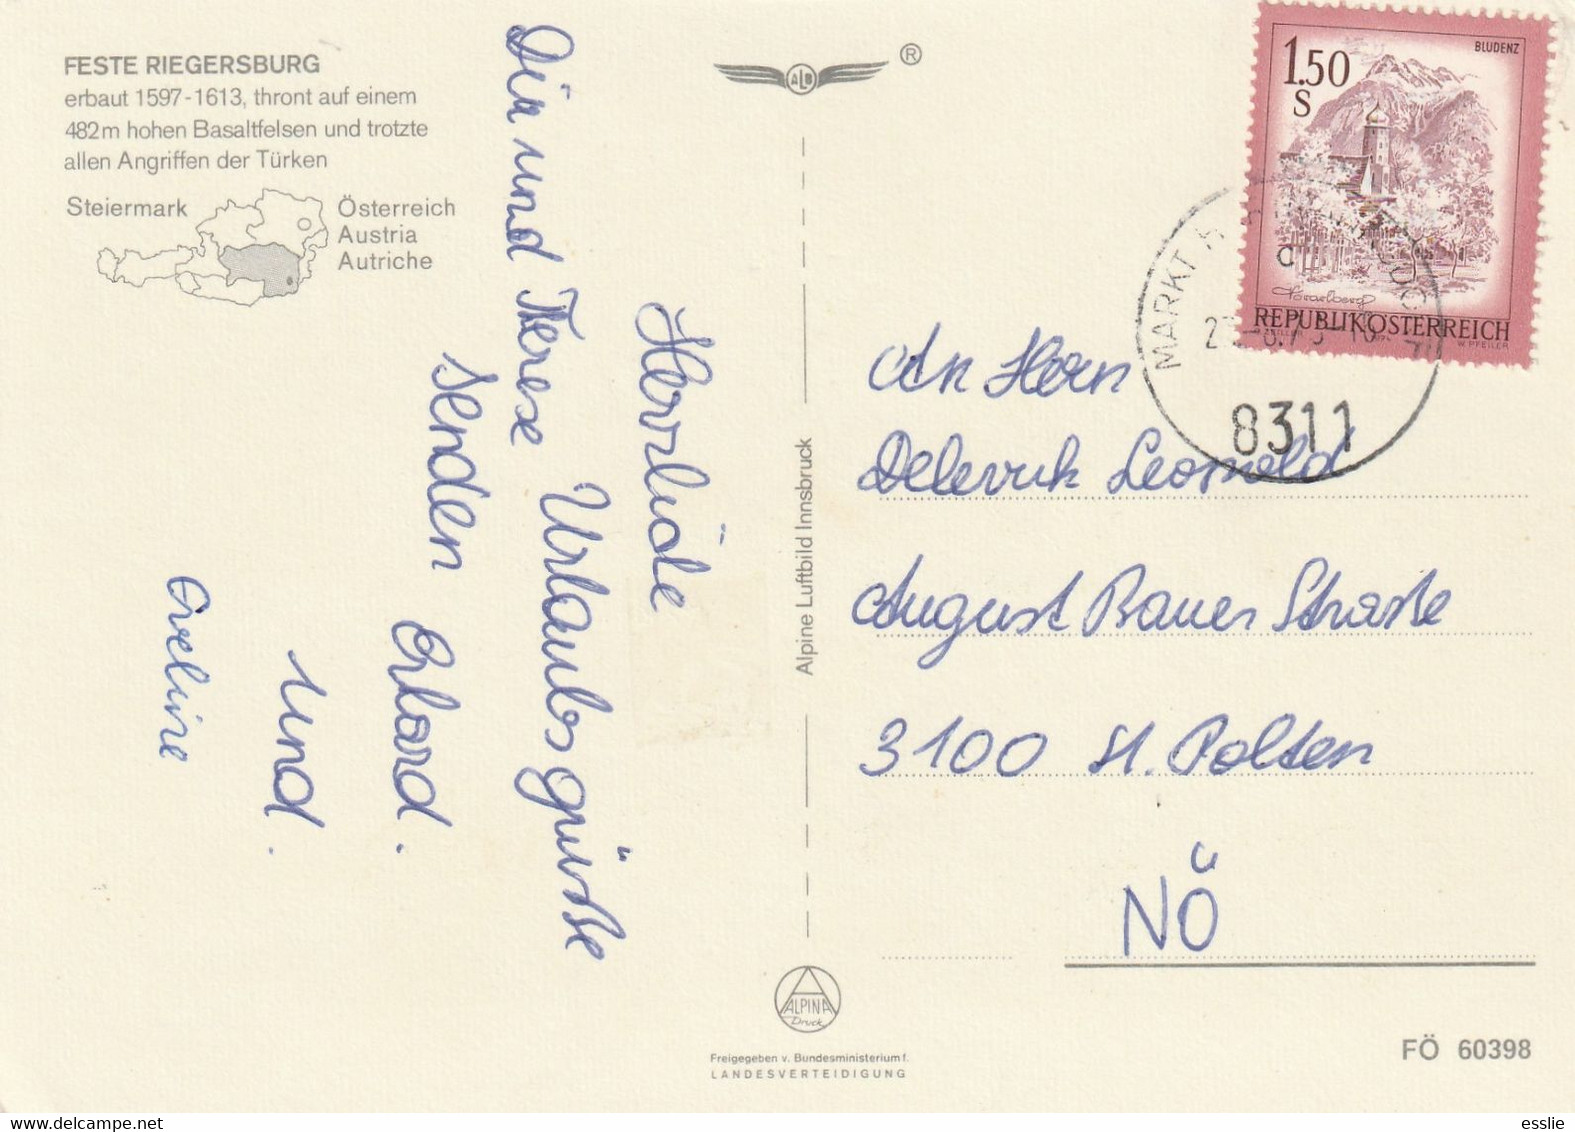 FESTE RIEGERSBURG
erbaut 1597-1613, thront auf einem
482m hohen Basaltfelsen und trotzte
allen Angriffen der Türken
Steiermark
Österreich
Austria
Autriche
Herzliche
Urlaubsgrüße
Dir und Therese
senden
Erhard.
und.
Eveline
ALB
®
Alpine Luftbild Innsbruck
ALPINA
Druck
Freigegeben v. Bundesministerium f.
LANDESVERTEIDIGUNG
1.50
S
BLUDENZ
Vorarlberg
REPUBLIK ÖSTERREICH
W. PFEILER
MARKT
8311
An Herrn
Leopold
August Bauer Straße
3100 St. Pölten
NÖ
FÖ 60398
esslie